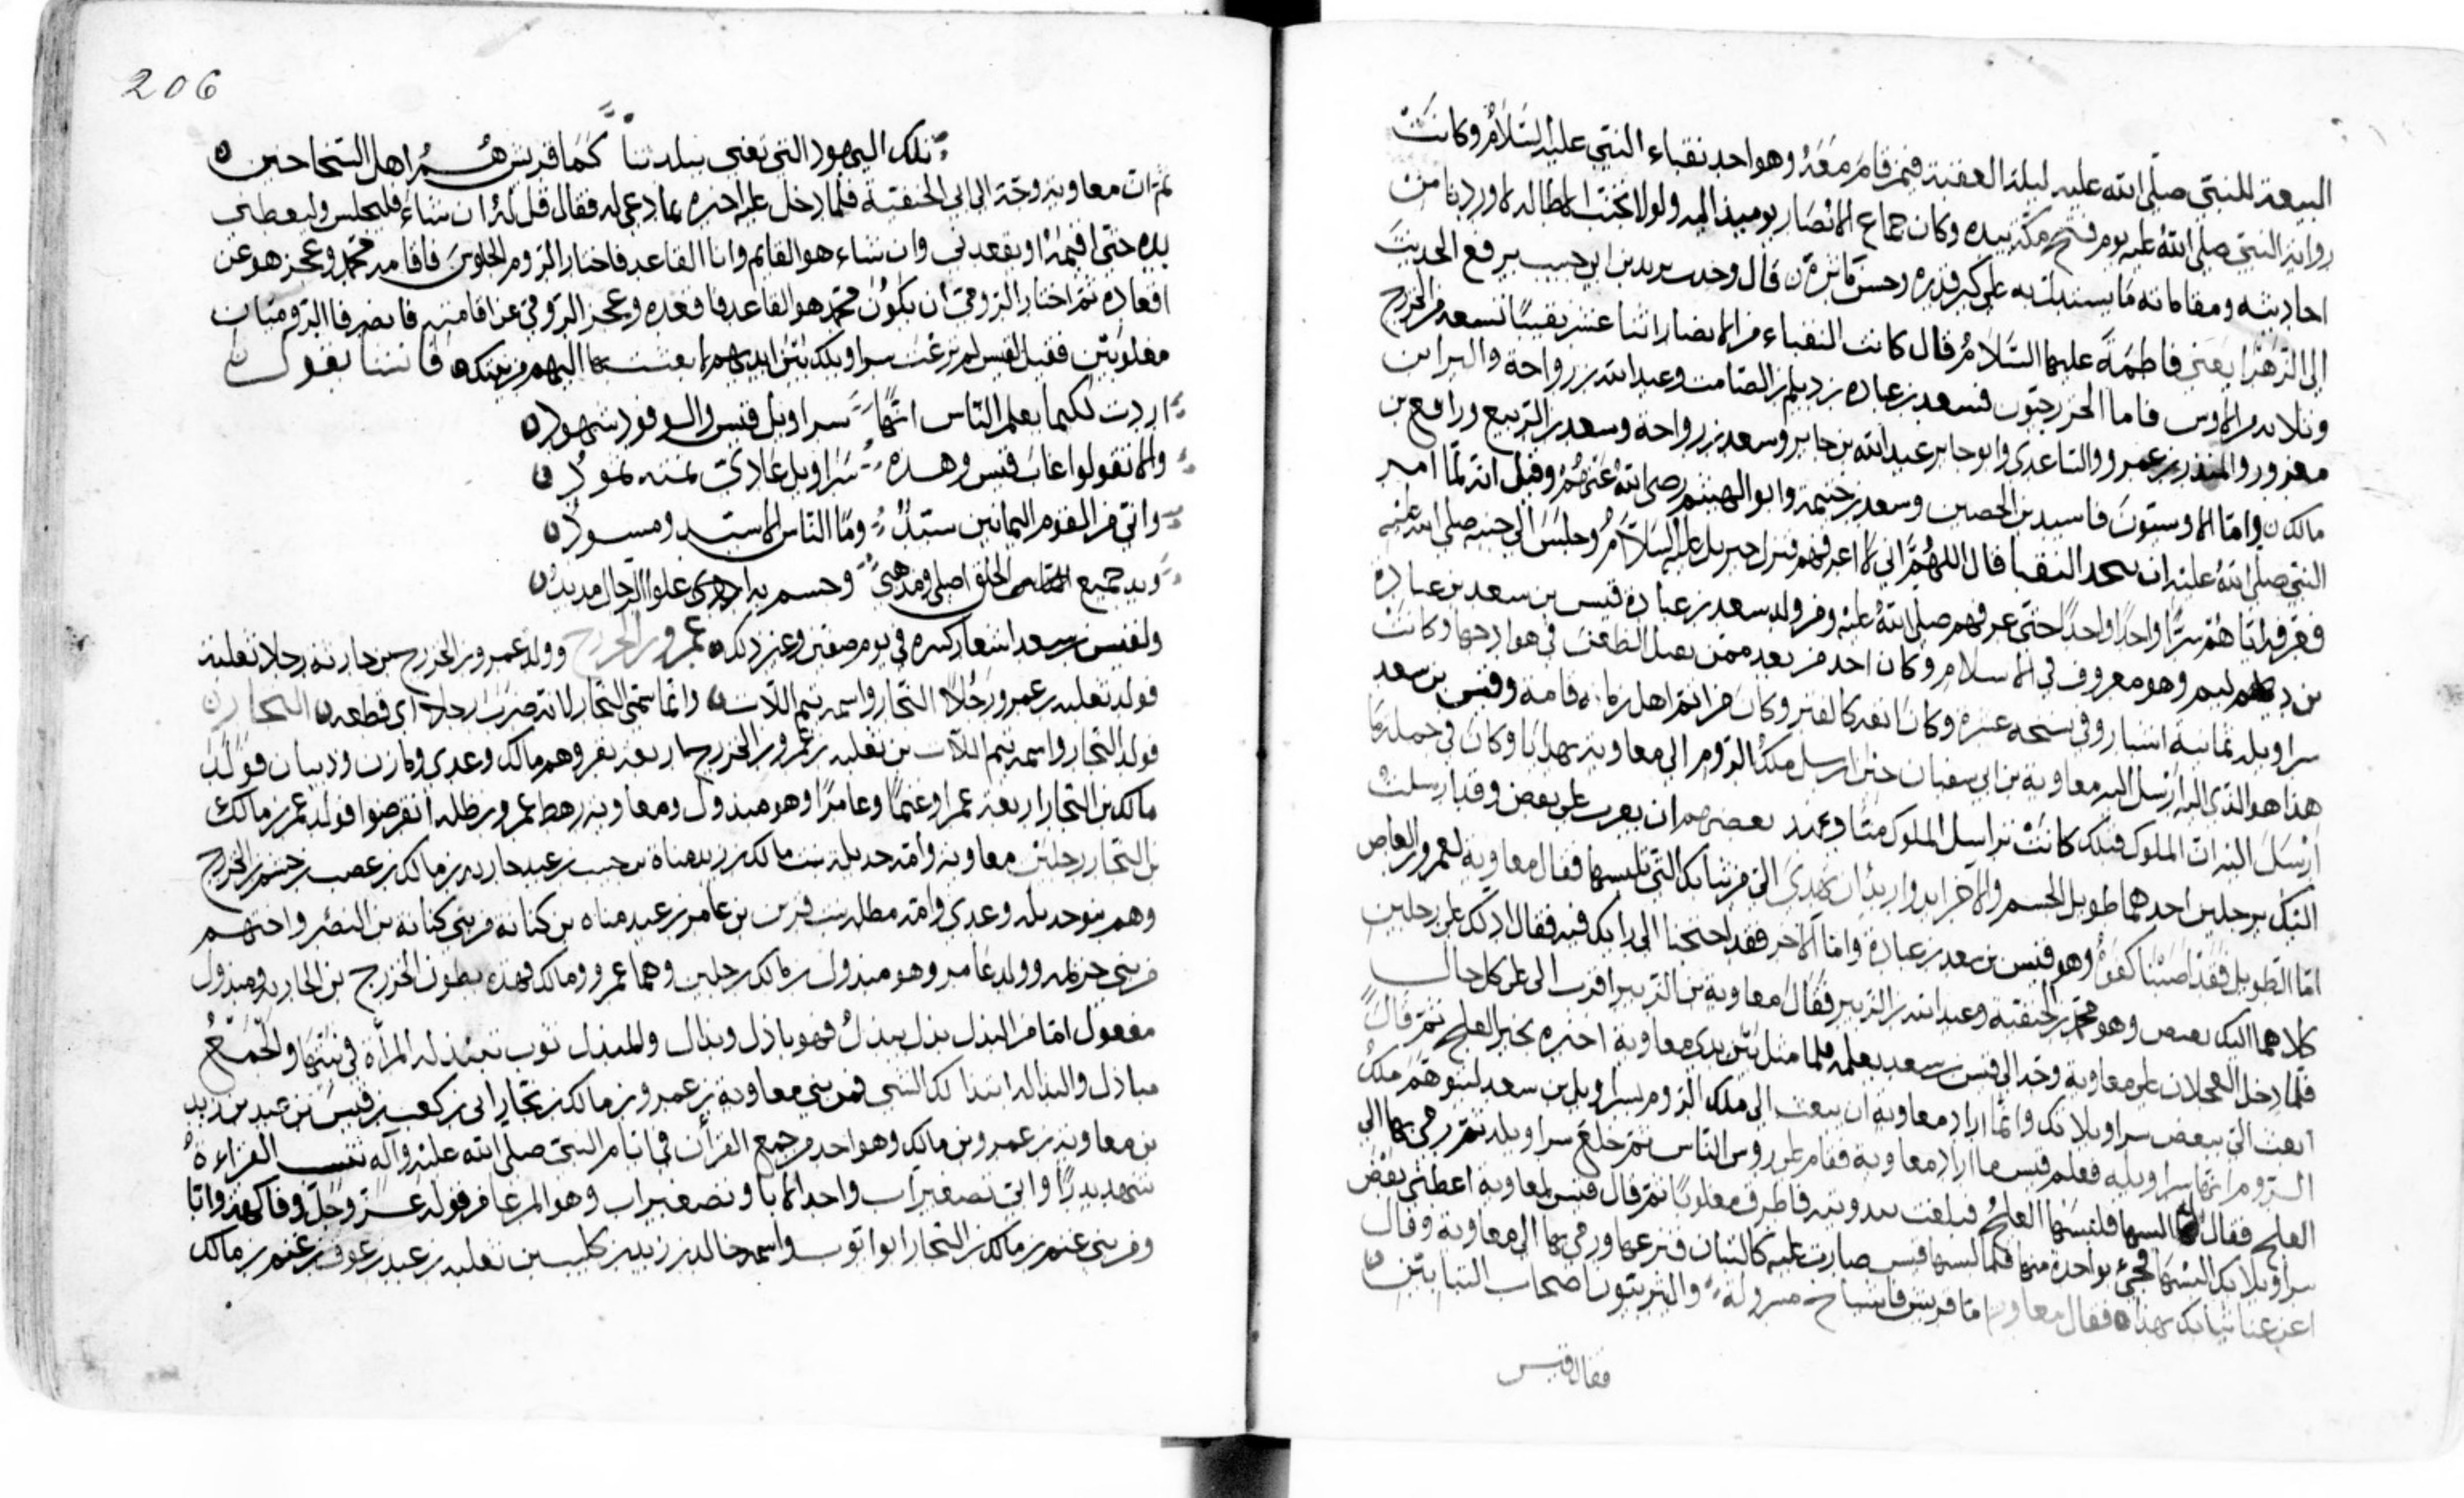 البيعة للنبي صلى الله عليه ليلة العقبة فيمن قام معه وهو احد نقباء النبي عليه السلام وكانت
راية النبي صلى الله عليه يوم فتح مكة بيده وكان جماع الانصار يومئذ اليه ولولا تجنب الاطالة لاوردنا من
احاديثه ومقاماته ما يستدل به على كبر قدره وحسن قال وحدث يزيد بن ابي حبيب يرفع الحديث
الى الزهرا يعني فاطمة عليها السلام قال كانت النقباء من الانصار اثنا عشر نقيبا تسعة من الخزرج
وثلاثة من الاوس فاما الخزرجيون فسعد بن عبادة بن دليم بن الصامت وعبد الله بن رواحة والبرا بن
معرور والمنذر بن عمرو الساعدي وابو جابر عبد الله بن جابر وسعد بن رواحة وسعد بن الربيع ورافع بن
مالك واما الاوسيون فاسيد بن الحصين وسعد بن خيثمة وابو الهيثم رضي الله عنهم وقيل انه لما امر
النبي صلى الله عليه ان يتخذ النقبا قال اللهم اني لا اعرفهم فنزل جبريل عليه السلام وجلس الى جنبه صلى الله عليه
فعرفه اياهم سرا واحدا واحدا حتى عرفهم صلى الله عليه ومن ولد سعد بن عبادة قيس بن سعد بن عبادة
بن دليم وهو معروف في الاسلام وكان احد من يعد ممن يقبل الظعن في هوادجها وكانت
سراويله ثمانية اشبار وفي نسخة عشرة وكان انفه كالفتر وكان من اتم اهل زمانه قامة وقيس بن سعد
هذا هو الذي ارسل اليه معاوية بن ابي سفيان حين ارسل ملك الروم الى معاوية بهدايا وكان في جملة ما
ارسل اليه ان الملوك قبلك كانت تراسل الملوك منا بعضهم ان يغرب على بعض وقد ارسلت
اليك برجلين احدهما طويل الجسم والآخر ايد واريد ان تهدي الي من ثيابك التي تلبسها فقال معاوية لعمرو بن العاص
اما الطويل فقد اصبنا كفوه وهو قيس بن سعد بن عبادة واما الآخر فقد احتجنا الى رايك فيه فقال ادلك على رجلين
كلاهما اليك بغيض وهو محمد بن الحنفية وعبد الله بن الزبير فقال معاوية بن الزبير اقرب الي على كل حال
فلما دخل العجلان على معاوية وجه الى قيس بن سعد يعلمه فلما مثل بين يدي معاوية اخبره بخبر العلج ثم قال
ابعث الي ببعض سراويلاتك وانما اراد معاوية ان يبعث الى ملك الروم بسراويل بن سعد ليتوهم ملك
الروم انها سراويله فعلم قيس ما اراد معاوية فقام على رؤس الناس ثم خلع سراويله ثم رمى بها الى
العلج فقال البسها فلبسها العلج فبلغت ثندوتيه فاطرق مغلوبا ثم قال قيس لمعاوية اعطني بعض
سراويلاتك البسها فجيء بواحدة منها فلما لبسها قيس صارت عليه كالتبان فنزعها ورمى بها الى معاوية وقال
اغن عنا ثيابك بهذا فقال معاوية اما قريش فاشياخ مسرولة واليثربيون اصحاب التبابين
فقال قيس
206
تلك اليهود التي تعني ببلدتنا كما قريش هم اهل السخاخين
ثم ان معاوية وجه الى ابن الحنفية فلما دخل عليه اخبره بما دعي له فقال قل له ان شاء فليجلس وليعطني
يده حتى اقيمه او يقعدني وان شاء هو القائم وانا القاعد فاختار الرومي الجلوس فاقامه محمد وعجز هو عن
اقعاده ثم اختار الرومي ان يكون محمد هو القاعد فاقعده وعجز الرومي عن اقامته فانصرفا الروميان
مغلوبين فقيل لقيس لم نزعت سراويلك بين ايديهم الا بعثت بها اليهم من بيتك فانشا يقول
اردت لكيما يعلم الناس انها سراويل قيس والوفود شهود
والا تقولوا غاب قيس وهذه سراويل عادي نمته ثمود
واني من القوم اليمانين سيد وما الناس الا سيد ومسود
وبذ جميع الخلق اصلي ومذهبي وجسم به اعلو الرجال مديد
ولقيس بن سعد اشعار كثيرة في يوم صفين وغير ذلك عمرو بن الخزرج وولد عمرو بن الخزرج بن حارثة رجلا ثعلبة
فولد ثعلبة بن عمرو رجلا النجار واسمه تيم اللات وانما سمي النجار لانه ضرب رجلا اي قطعه النجار
فولد النجار واسمه تيم اللات بن ثعلبة بن عمرو بن الخزرج اربعة نفر وهم مالك وعدي ومازن ودينار فولد
مالك بن النجار اربعة عمرا وغنما وعامرا وهو مبذول ومعاوية رهط عمرو بن ظلة انقرضوا فولد عمر بن مالك
بن النجار رجلين معاوية وامه حديلة بنت مالك بن زيد مناة بن حبيب بن عبد حارثة بن مالك بن غضب بن جشم بن الخزرج
وهم بنو حديلة وعدي وامه مطلة بنت بن عامر بن عبد مناة بن كنانة من بني كنانة بن النضر واختهم
من بني خزيمة وولد عامر وهو مبذول بن مالك رجلين وهما عمرو ومالك فهذه بطون الخزرج بن الحارثة ومبذول
مفعول اما من البذل بذل يبذل فهو باذل وبذال والمبذل ثوب تبتذله المرأة في بيتها والجمع
مباذل والبذالة ابتذالك الشي فمن بني معاوية بن عمرو بن مالك بن نجار ابي بن كعب بن قيس بن عبيد بن زيد
بن معاوية بن عمرو بن مالك وهو احد من جمع القرآن في ايام النبي صلى الله عليه وآله القراءة
شهد بدرا وابي تصغير اب واحد الابا وتصغير اب وهو المرعا من قوله عز وجل وفاكهة وابا
ومن بني غنم بن مالك بن النجار ابو ايوب واسمه خالد بن زيد بن كليب بن ثعلبة بن عبد بن عوف بن غنم بن مالك